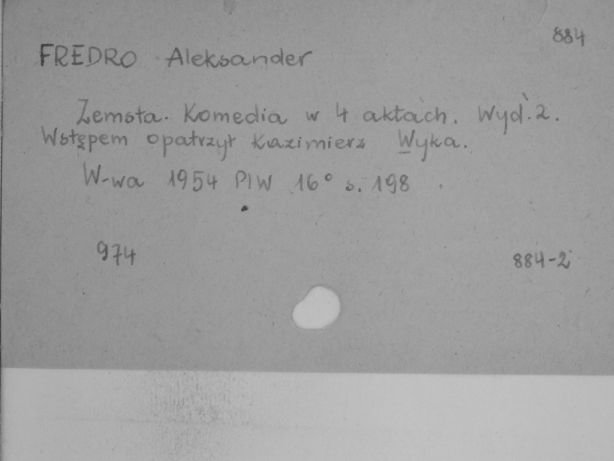 884
FREDRO Aleksander
Zemsta. Komedia w 4 aktach. Wyd. 2.
Wstępem opatrzył Kazimierz Wyka.
W-wa 1954 PIW 16° s. 198
974
884-2